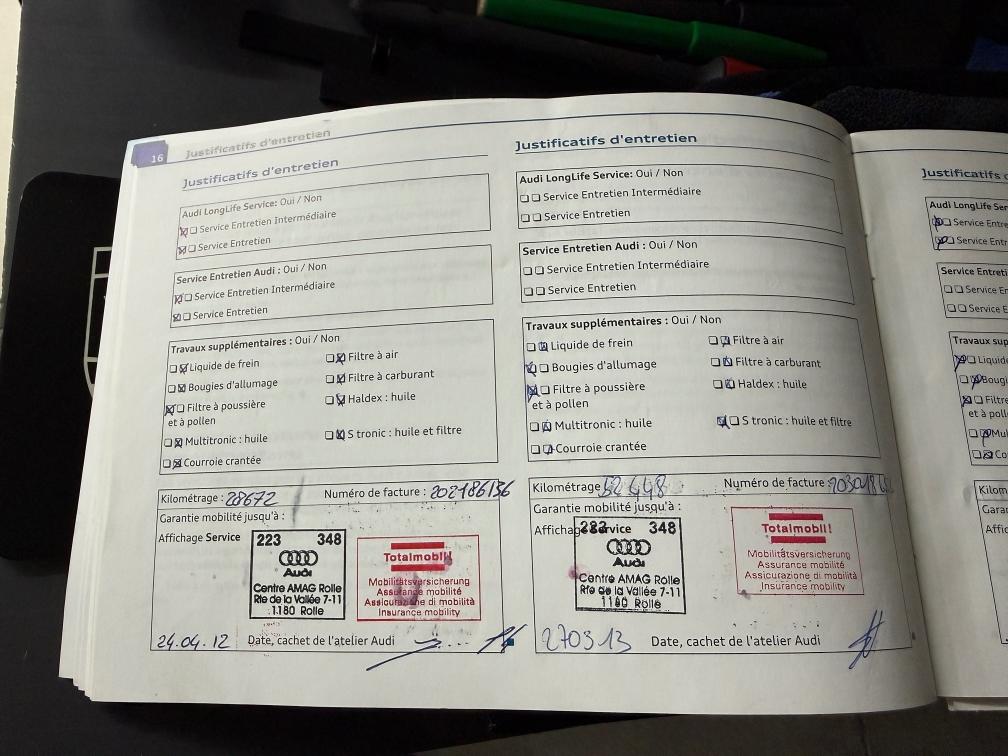 16 Justificatifs d'entretien
Justificatifs d'entretien
Audi LongLife Service: Oui / Non
Service Entretien Intermédiaire
Service Entretien
Service Entretien Audi : Oui / Non
Service Entretien Intermédiaire
Service Entretien
Travaux supplémentaires : Oui / Non
Liquide de frein
Filtre à air
Bougies d'allumage
Filtre à carburant
Filtre à poussière
et à pollen
Haldex : huile
Multitronic : huile
S tronic : huile et filtre
Courroie crantée
Kilométrage : 28672 Numéro de facture : 202186136
Garantie mobilité jusqu'à :
Affichage Service
223 348
Audi
Centre AMAG Rolle
Rte de la Vallée 7-11
1180 Rolle
Totalmobil!
Mobilitätsversicherung
Assurance mobilité
Assicurazione di mobilità
Insurance mobility
24.04.12 Date, cachet de l'atelier Audi
Justificatifs d'entretien
Audi LongLife Service: Oui / Non
Service Entretien Intermédiaire
Service Entretien
Service Entretien Audi : Oui / Non
Service Entretien Intermédiaire
Service Entretien
Travaux supplémentaires : Oui / Non
Liquide de frein
Filtre à air
Bougies d'allumage
Filtre à carburant
Filtre à poussière
et à pollen
Haldex : huile
Multitronic : huile
S tronic : huile et filtre
Courroie crantée
Kilométrage 52448 Numéro de facture :
Garantie mobilité jusqu'à :
348
Audi
Centre AMAG Rolle
Rte de la Vallée 7-11
1180 Rolle
Totalmobil!
Mobilitätsversicherung
Assurance mobilité
Assicurazione di mobilità
Insurance mobility
270313 Date, cachet de l'atelier Audi
Justificatifs
Audi LongLife
Service
Service
Service
Service
Service
Travaux
Filtre